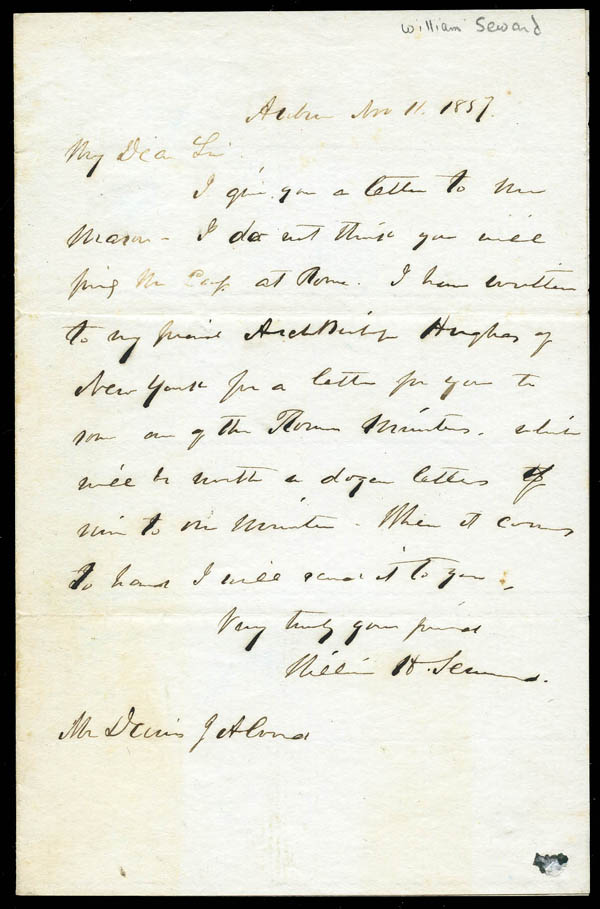 William Seward
Auburn Nov 11. 1857.
My Dear Sir.
I give you a letter to Mr
Mason - I do not think you will
find Mr Cass at Rome. I have written
to my friend ArchBishop Hughes of
New York for a letter for you to
some one of the Roman Ministers. which
will be worth a dozen letters of
mine to our Minister - When it comes
to hand I will send it to you.
Very truly your friend
William H. Seward.
Mr Dennis